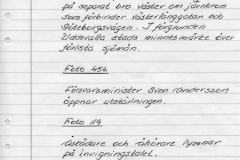 på separat bro väster om järnbron
som förbinder Västerlånggatan och
Göteborgsvägen. I förgrunden
Uddevalla stads minnesmärke över
förlista sjömän.
Foto 456
Försvarsminister Sven Andersson
öppnar utställningen.
Foto 119
åskådare och åhörare lyssnar
på invigningstalet.